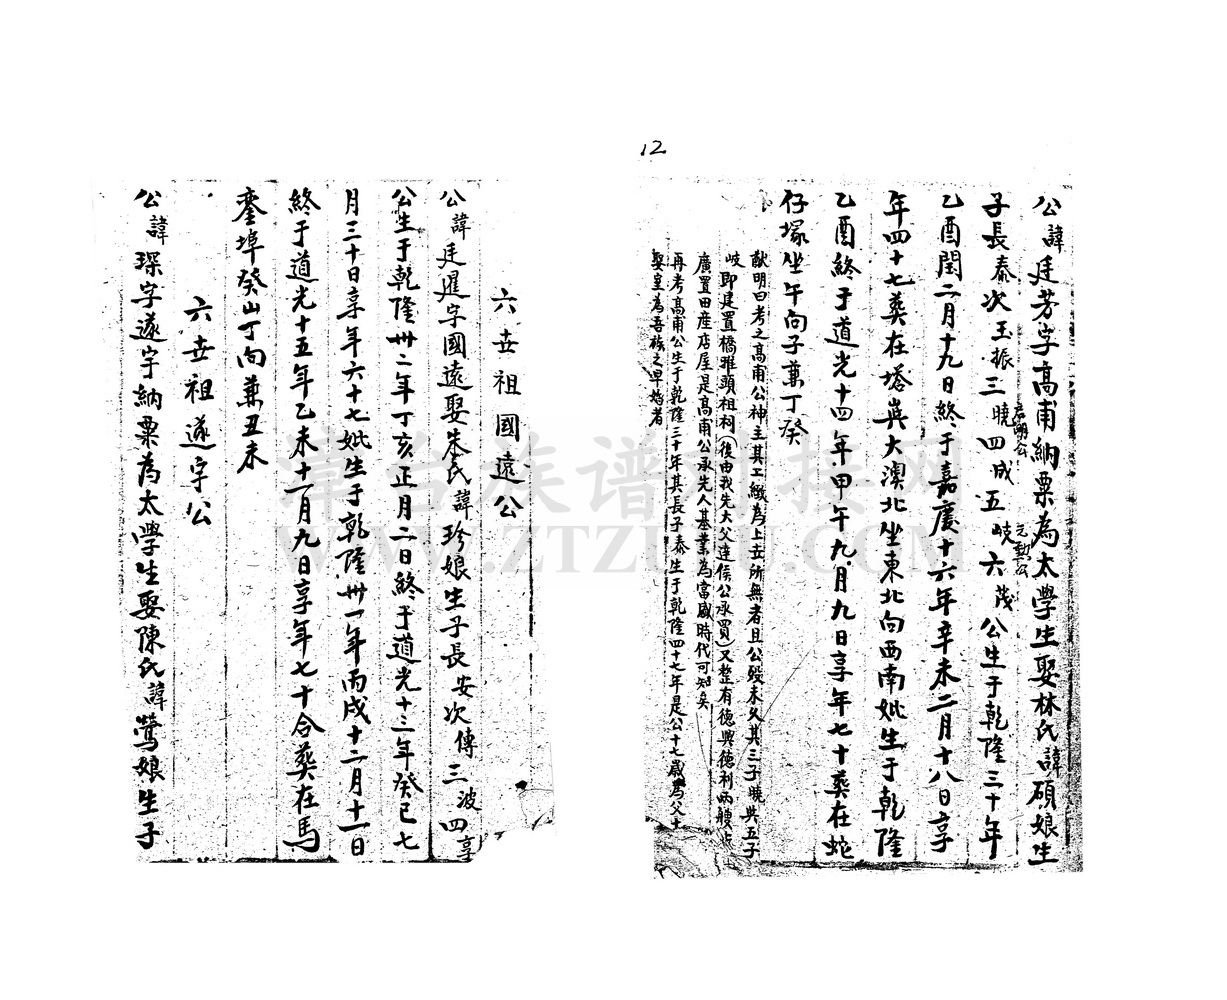 12
公諱廷芳字高甫納粟為太學生娶林氏諱碩娘生
子長泰次玉振三曉四成五岐六茂公生于乾隆三十年
啟明公
元勳公
乙酉閏二月十九日終于嘉慶十六年辛未二月十八日享
年四十七葬在塔㘵大澳北坐東北向西南妣生于乾隆
乙酉終于道光十四年甲午九月九日享年七十葬在蛇
仔塚坐午向子兼丁癸
猷明曰考之高甫公神主其工緻為上世所無者且公歿未久其三子曉與五子
岐即建置橋雅頭祖祠(後由我先大父達侯公承買)又整有德興德利兩艘
廣置田產店屋是高甫公承先人基業為當盛時代可知矣
再考高甫公生于乾隆三十年其長子泰生于乾隆四十七年是公十七歲為父
娶室為吾族之早婚者
六世祖國遠公
公諱廷暹字國遠娶朱氏諱珍娘生子長安次傳三波四享
公生于乾隆卅二年丁亥正月二日終于道光十三年癸巳七
月三十日享年六十七妣生于乾隆卅一年丙戌十二月十一日
終于道光十五年乙未十一月九日享年七十合葬在馬
鑾埠癸山丁向兼丑未
六世祖遂宇公
公諱琛字遂宇納粟為太學生娶陳氏諱鶯娘生子
漳台族谱对接网
WWW.ZTZUPU.COM